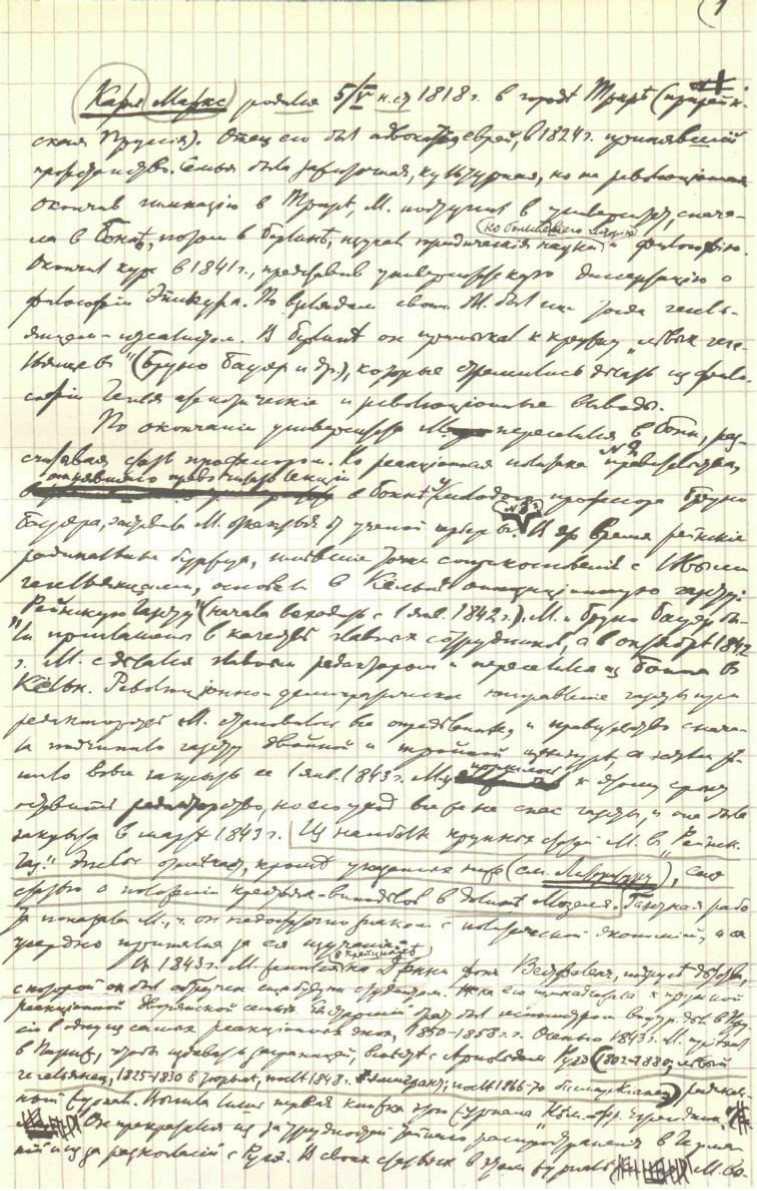 1
Карл Маркс родился 5/V н. ст. 1818 г. в городѣ Трирѣ (прирейн-
ская Пруссия). Отец его был адвокат, еврей, в 1824 г. принявший
протестантство. Семья была зажиточная, культурная, но не революционная.
Окончив гимназию в Трирѣ, М. поступил в университет, снача-
(но больше всего историю
ла в Боннѣ, потом в Берлинѣ, изучал юридическия науки и философию.
Окончил курс в 1841 г., представив университетскую диссертацию о
философии Эпикура. По взглядам своим М. был еще тогда гегель-
янцем-идеалистом. В Берлинѣ он примыкал к кружку „лѣвых геге-
льянцев" (Бруно Бауэр и др.), которые стремились дѣлать из фило-
софии Гегеля атеистические и революционные выводы.
По окончании университета М. переселился в Бонн, рас-
считывая стать профессором. Но реакционная политика правительства,
отнявшего право читать лекции
в Боннѣ у молодого профессора Бруно
Бауэра, заставила М. отказаться от ученой карьеры. В это время рейнские
радикальные буржуа, имѣвшие точки соприкосновения с лѣвыми
гегельянцами, основали в Кельнѣ оппозиционную газету:
„Рейнскую Газету" (начала выходить с 1 янв. 1842 г.). М. и Бруно Бауэр бы-
ли приглашены в качествѣ главных сотрудников, а в октябрѣ 1842
г. М. сделался главным редактором и переселился из Бонна в
Кельн. Революционно-демократическое направление газеты при
редакторствѣ М. становилось все опредѣленнѣе, и правительство снача-
ла подчинило газету двойной и тройной цензурѣ, а затѣм рѣ-
шило вовсе закрыть ее 1 янв. 1843 г. М. пришлось к этому сроку
оставить редакторство, но его уход все же не спас газеты, и она была
закрыта в мартѣ 1843 г. Из наиболѣе крупных статей М. в „Рейнск.
Газ." Энгельс отмѣчает, кромѣ указанных ниже (см. Литературу), еще
статью о положении крестьян-виноделов в долинѣ Мозеля. Газетная рабо-
та показала М., ч. он недостаточно знаком с политической экономией, и он
усердно принялся за ее изучение.
в Крейцнахѣ
В 1843 г. М. женился на Дженни фон Вестфален, подругѣ дѣтства,
с которой он был обручен еще будучи студентом. Жена его принадлежала к прусской
реакционной дворянской семьѣ. Ея старший брат был министром внутр. дѣл в Прус-
сии в одну из самых реакционных эпох, 1850-1858 гг. Осенью 1843 г. М. приѣхал
в Париж, чтобы издавать заграницей, вмѣстѣ с Арнольдом Руге (1802-1880; лѣвый
гегельянец, 1825-1830 в тюрьмѣ, послѣ 1848 г. эмигрант; послѣ 1866-70 бисмаркианец) радикаль-
ный журнал. Вышла лишь первая книжка этого журнала „Нѣм.-Фр. Ежегодник."
Он прекратился из-за трудностей тайного распространения в Герма-
нии и из-за разногласий с Руге. В своих статьях в этом журналѣ М. вы-